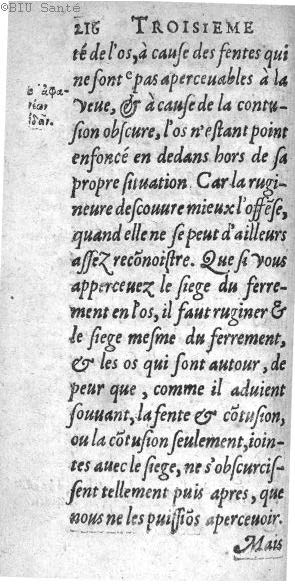 ©BIU Santé
216 TROISIEME
té de l'os, à cause des fentes qui
ne sont c pas aperceuables à la
veue, & à cause de la contu-
sion obscure, l'os n'estant point
enfoncé en dedans hors de sa
propre situation. Car la rugi-
neure descouure mieux l'offẽse,
quand elle ne se peut d'ailleurs
assez recõnoistre. Que si vous
apperceuez le siege du ferre-
ment en l'os, il faut ruginer &
le siege mesme du ferrement,
& les os qui sont autour, de
peur que, comme il aduient
souuant, la fente & cõtusion,
ou la cõtusion seulement, ioin-
tes auec le siege, ne s'obscurcis-
sent tellement puis apres, que
nous ne les puissiõs aperceuoir.
Mais
ἀφα-
νέων